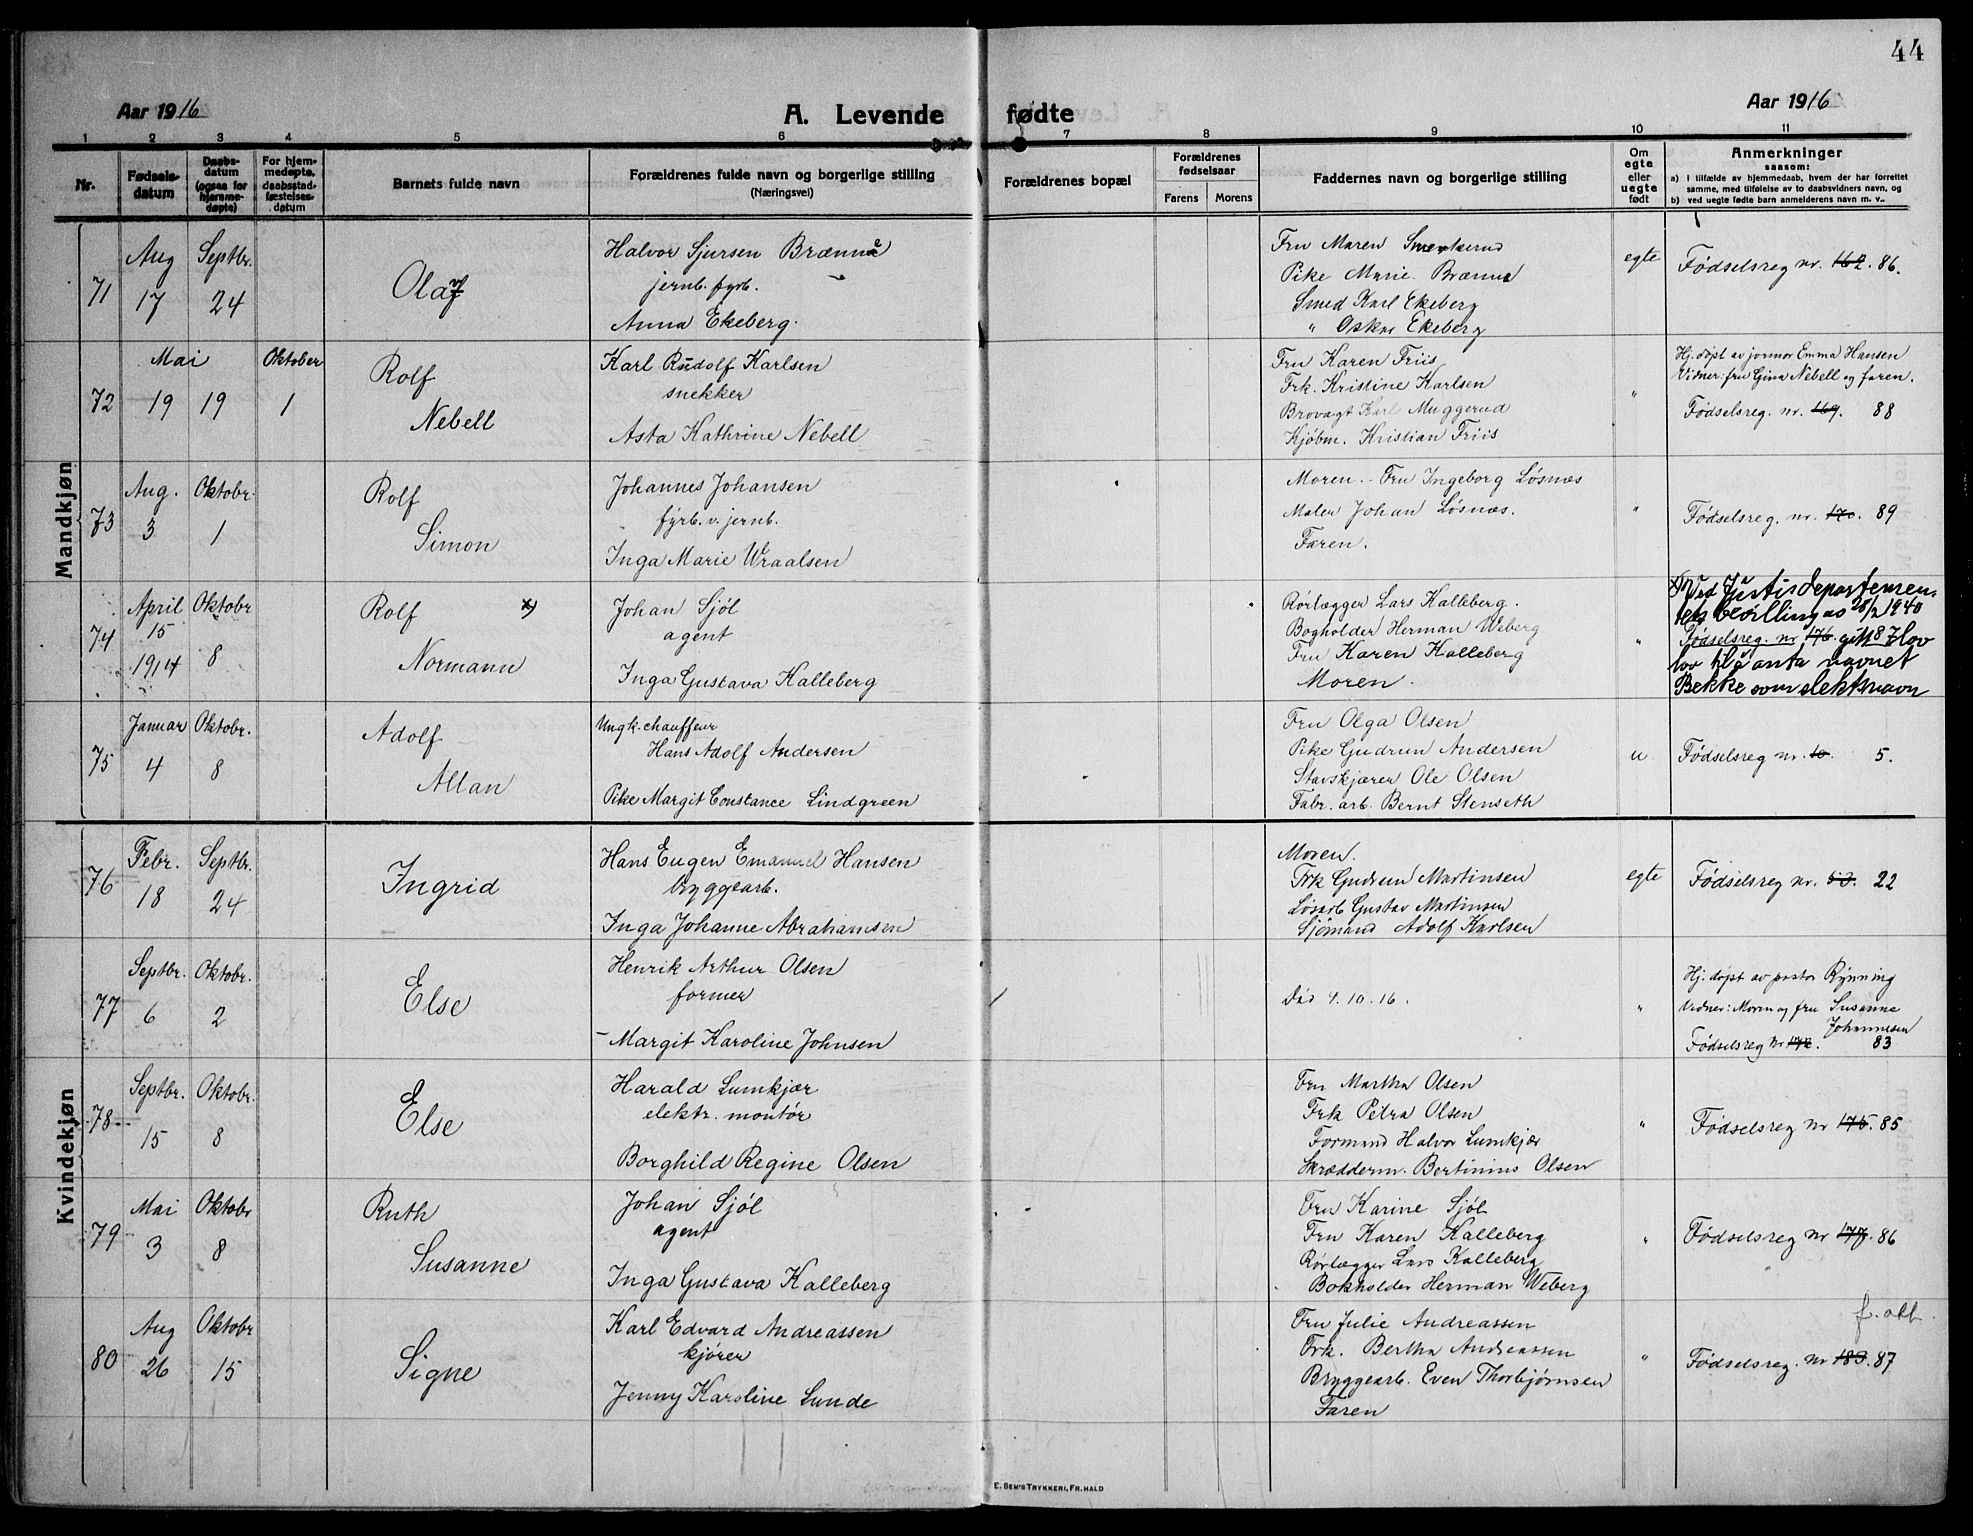 44
Aar 1916 A. Levende fødte Aar 1916
1 2 3 4 5 6 7 8 9 10 11
Nr.
Fødsels-
datum
Daabs-
datum
(ogsaa for
hjemme-
døpte)
For hjem-
medøpte,
daabsstad-
fæstelses-
datum
Barnets fulde navn
Forældrenes fulde navn og borgerlige stilling
(Næringsvei)
Forældrenes bopæl
Forældrenes
fødselsaar
Farens Morens
Faddernes navn og borgerlige stilling
Om
egte
eller
uegte
født
Anmerkninger
saasom:
a) I tilfælde av hjemmedaab, hvem der har forrettet
samme, med tilføielse av to daabsvidners navn, og
b) ved uegte fødte barn anmelderens navn m. v..
Mandkjøn
71
Aug
17
Septbr.
24
Olaf
Halvor Sjursen Brænne
jernb. fyrb.
Anna Ekeberg.
Fru Maren
Pike Marie Brænna
Smed Karl Ekeberg
" Oskar Ekeberg
egte
Fødselsreg nr. 162. 86.
72
Mai
19 19
Oktober
1
Rolf
Nebell
Karl Rudolf Karlsen
snekker
Asta Kathrine Nebell
Fru Karen Friis
Frk. Kristine Karlsen
Brovagt Karl Muggerud
Kjøbm. Kristian Friis
"
Hj. døpt av jormor Emma Hansen
Vidner: fru Gina Nebell og faren.
Fødselsreg. nr. 169. 88
73
Aug.
3
Oktobr.
1
Rolf
Simon
Johannes Johansen
fyrb. v. jernb.
Inga Marie Wraalsen
Moren. Fru Ingeborg Løsnæs
Maler Johan Løsnæs.
Faren.
"
Fødselsreg. nr. 170. 89
74
April
15
1914
Oktobr
8
Rolf x)
Normann
Johan Sjöl
agent
Inga Gustava Kalleberg
Rørlægger Lars Kalleberg.
Bogholder Herman Weberg
Fru Karen Kalleberg
Moren.
"
x) Ved Justisdepartemen-
tets bevilling av 28/2 1940
Fødselsreg. nr 176.
lov til å anta navnet
Bekke som slektsnavn
75
Januar
4
Oktobr.
8
Adolf
Allan
Ungk. chauffeur
Hans Adolf Andersen
Pike Margit Constance Lindgreen
Fru Olga Olsen
Pike Gudrun Andersen
Stavskjærer Ole Olsen
Fabr. arb. Bernt Stenseth
u
Fødselsreg nr. 10. 5.
Kvindekjøn
76
Febr.
18
Septbr.
24
Ingrid
Hans Eugen Emanuel Hansen
byggearb.
Inga Johanne Abrahamsen
Moren.
Frk Gudrun Martinsen
Løsarb Gustav Martinsen
Sjømand Adolf Karlsen
egte
Fødselsreg nr. 53. 22
77
Septbr.
6
Oktobr.
2
Else
Henrik Arthur Olsen
former
Margit Karoline Johnsen
Død 4.10.16.
"
Hj. døpt av pastor Rynning
Vidner: Moren og fru Susanne
Johannesen
Fødselsreg Nr 83
78
Septbr.
15
Oktobr.
8
Else
Harald Lumkjær
elektr. montør
Borghild Regine Olsen
Fru Martha Olsen
Frk Petra Olsen
Formand Halvor Lumkjær
Skrædderm. Bertinius Olsen
"
Fødselsreg nr 175. 85
79
Mai
3
Oktobr
8
Ruth
Susanne
Johan Sjöl
agent
Inga Gustava Kalleberg
Fru Karine Sjöl
Fru Karen Kalleberg
Rørlægger Lars Kalleberg
Bokholder Herman Weberg
"
Fødselsreg nr 177. 86
80
Aug
26
Oktobr
15
Signe
Karl Edvard Andreassen
kjører
Jenny Karoline Lunde
Fru Julie Andreassen
Frk. Bertha Andreassen
Byggearb. Even Thorbjørnsen
Faren
"
Fødselsreg. nr 183. 87
E. SEM'S TRYKKERI, FR.HALD